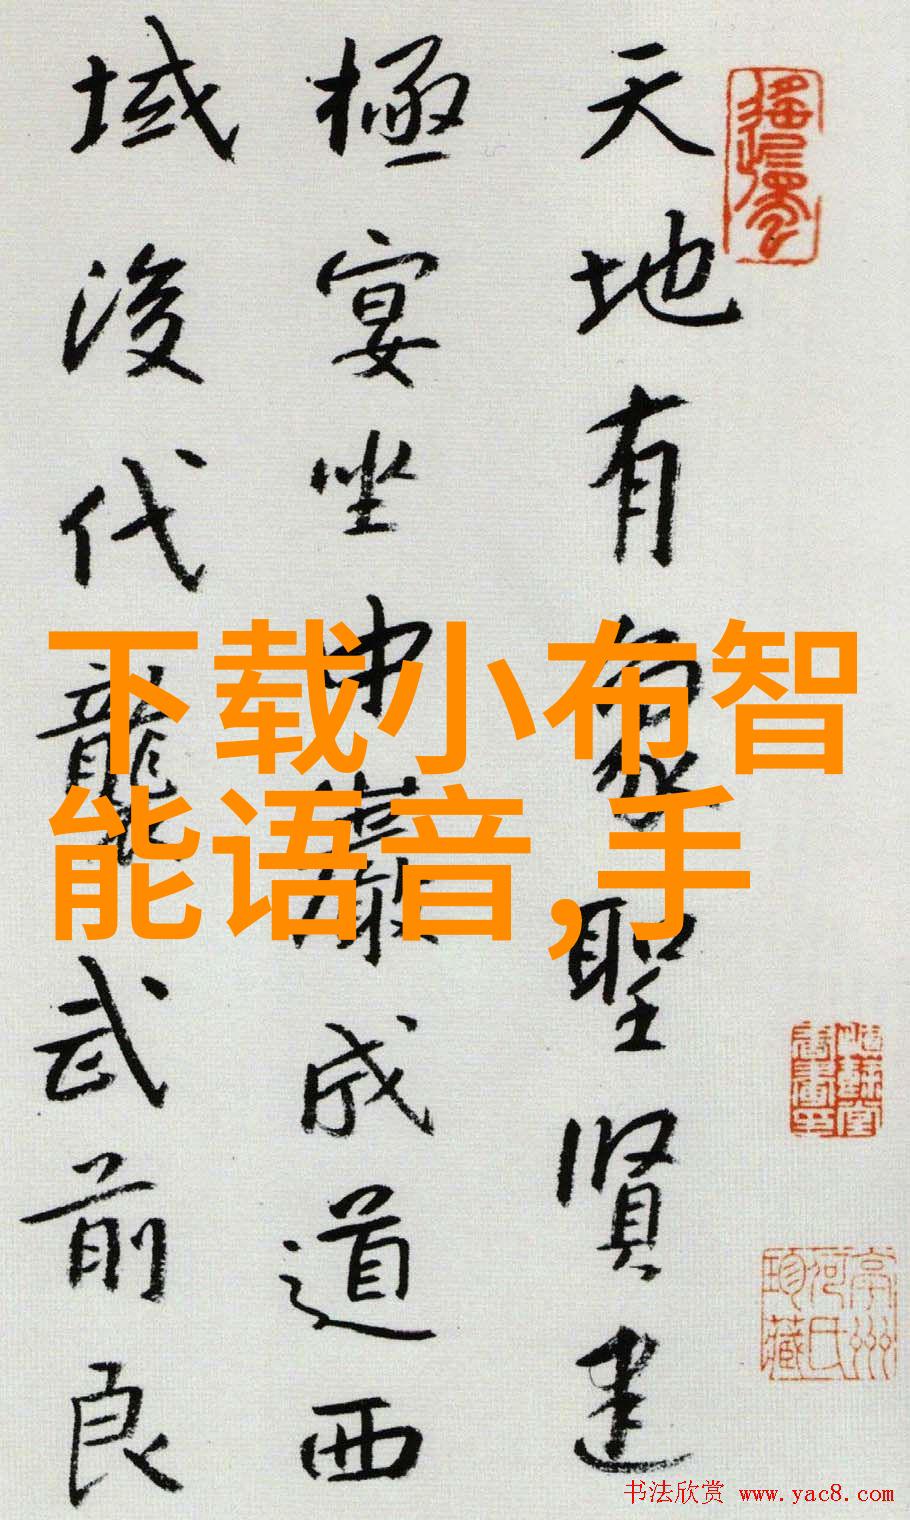 天地有象聖賢建
極宴坐中巖成道西
域後代龍武前良
下载小布智
能语音,手
书法欣赏 www.yac8.com